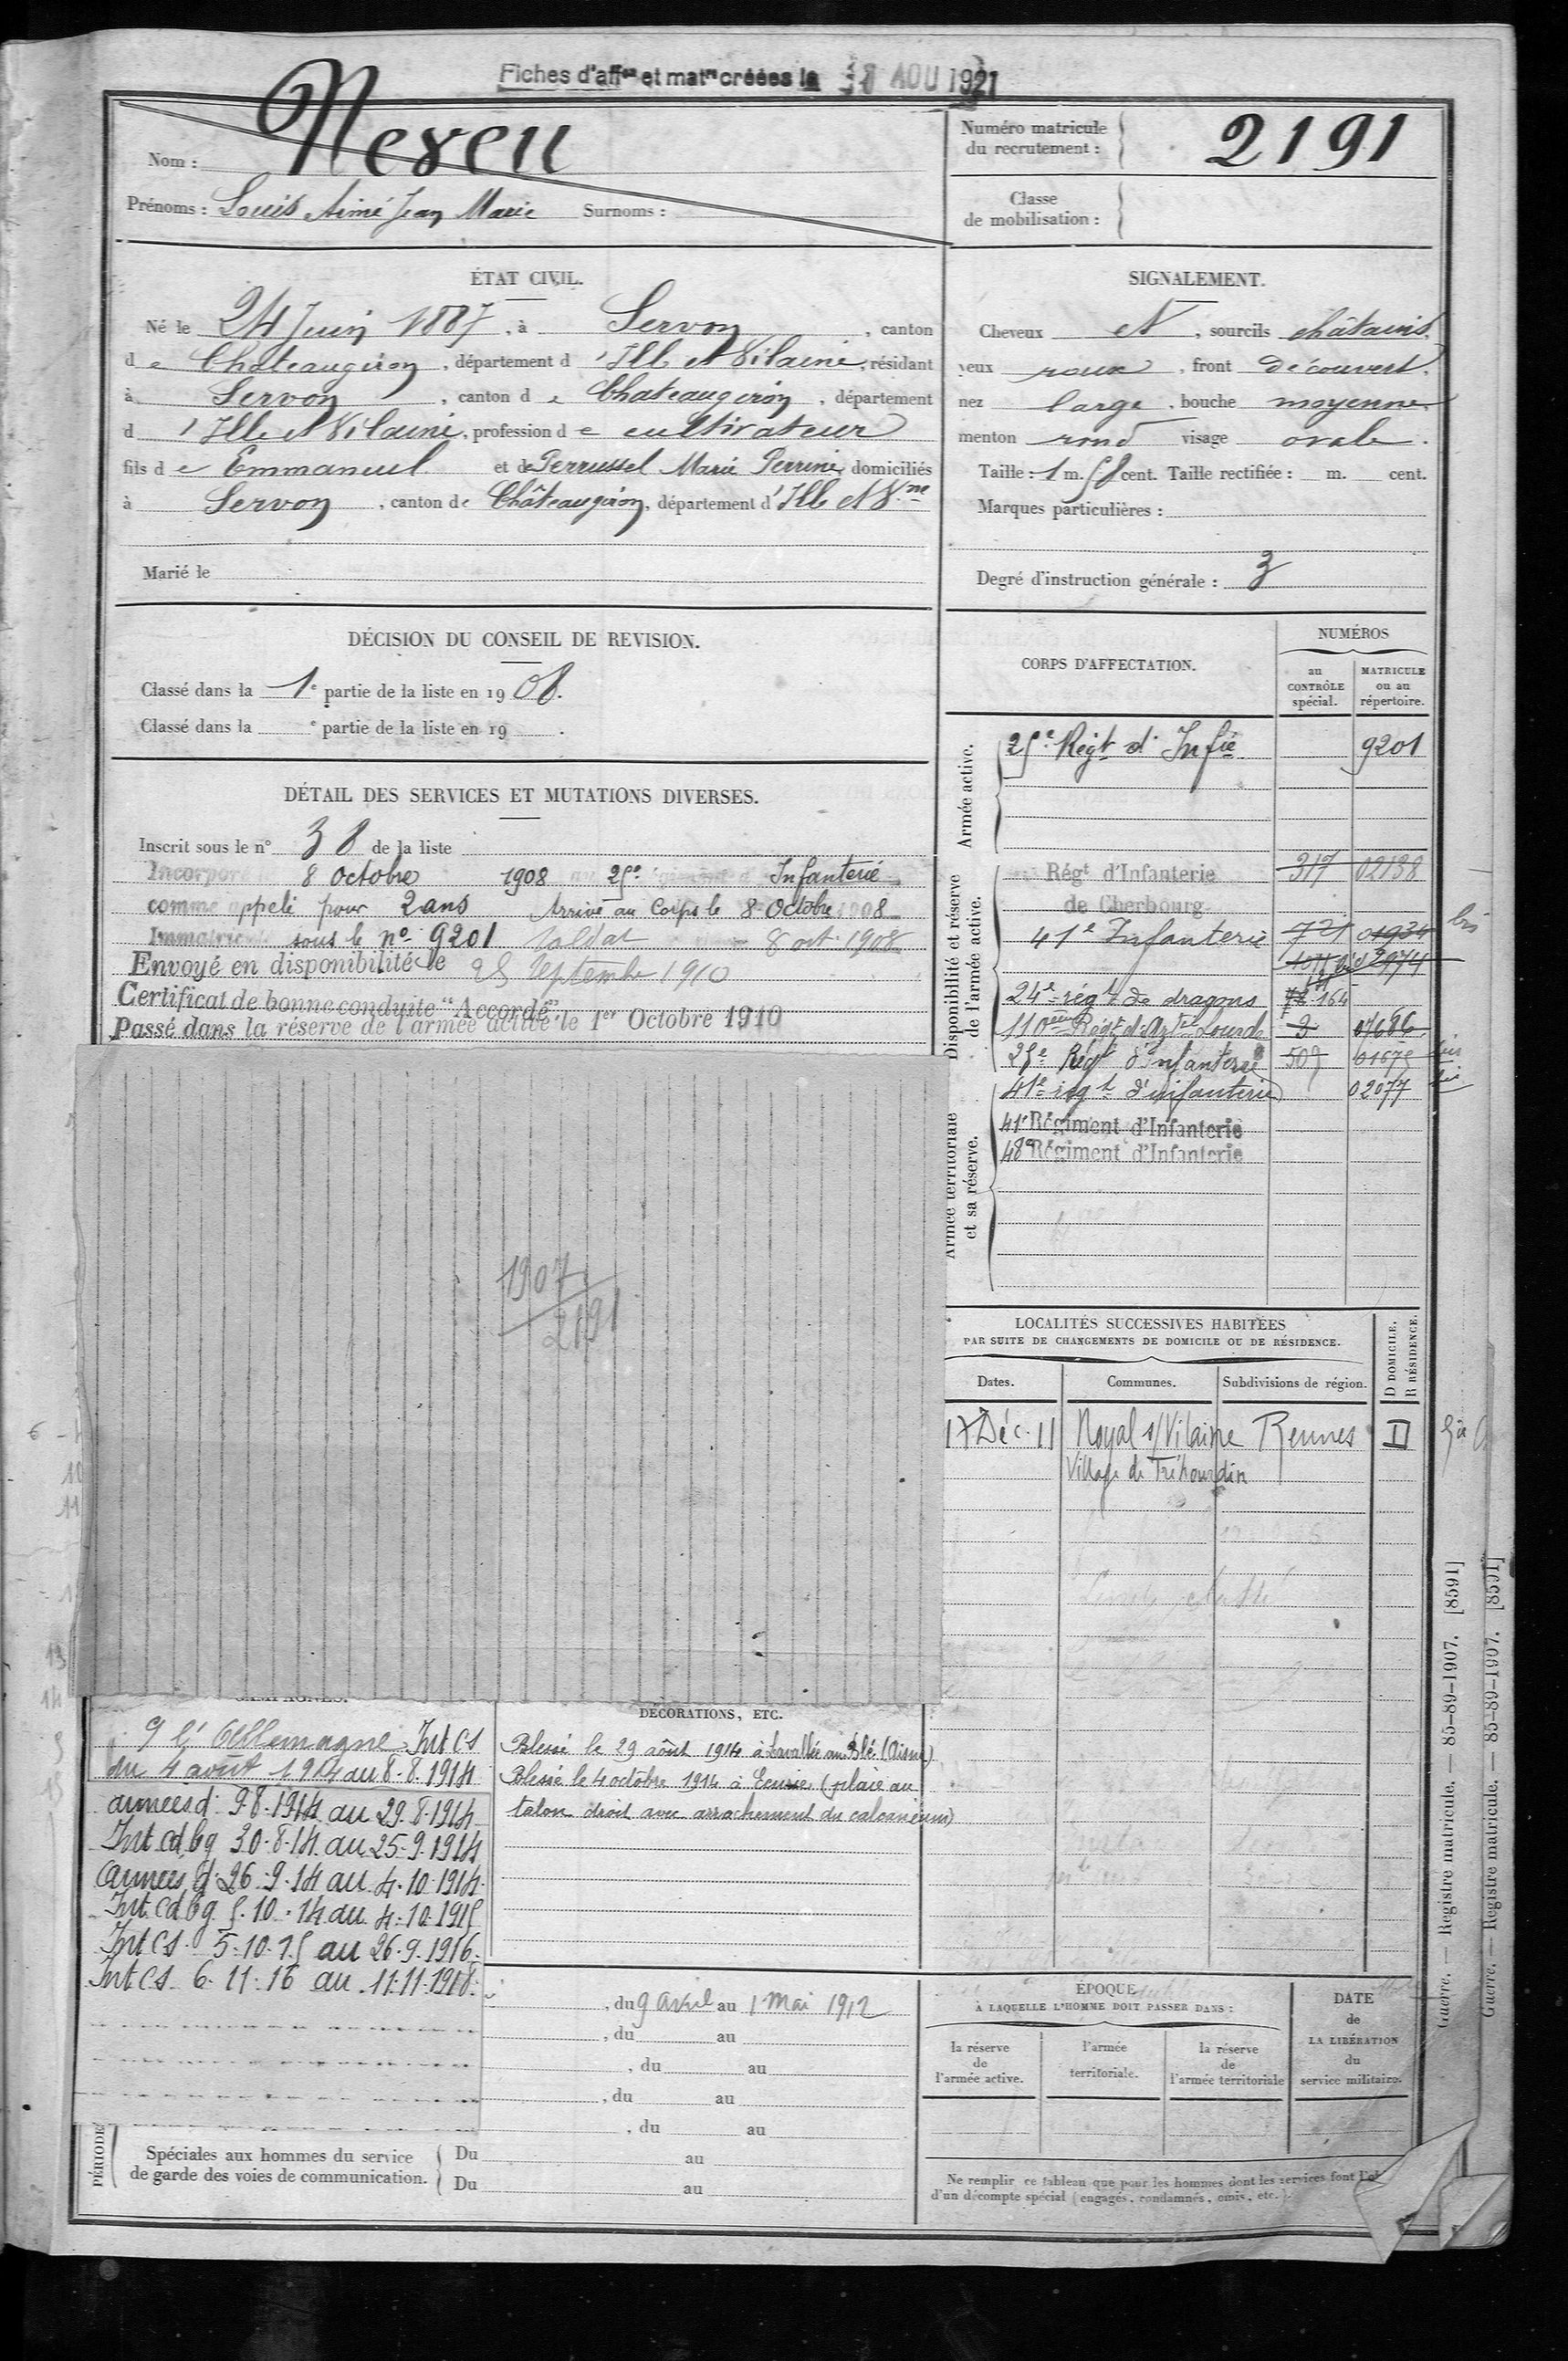 Fiches d'affon et matle créées le 8 AOU 1921
Nom : Neveu
Prénoms : Louis Aimé Jean Marie Surnoms :
Numéro matricule
du recrutement : 2191
Classe
de mobilisation :
ÉTAT CIVIL.
Né le 24 Juin 1887, à Servon, canton
de Chateaugiron, département d'Ille et Vilaine, résidant
à Servon, canton de Chateaugiron, département
d'Ille et Vilaine, profession de cultivateur
fils de Emmanuel et de Perrussel Marie Perrine, domiciliés
à Servon, canton de Châteaugiron, département d'Ille et V.ne
Marié le
SIGNALEMENT.
Cheveux et, sourcils châtains,
yeux roux, front découvert,
nez large, bouche moyenne,
menton rond visage ovale.
Taille : 1 m. 58 cent. Taille rectifiée : m. cent.
Marques particulières :
Degré d'instruction générale : 3
DÉCISION DU CONSEIL DE REVISION.
Classé dans la 1e partie de la liste en 1908.
Classé dans la e partie de la liste en 19 .
DÉTAIL DES SERVICES ET MUTATIONS DIVERSES.
Inscrit sous le n° 38 de la liste
Incorporé 8 octobre 1908 au 25e Infanterie
comme appelé pour 2 ans Arrivé au Corps le 8 Octobre 1908
Immatriculé sous le n° 9201 Soldat 8 oct. 1908
Envoyé en disponibilité le 25 Septembre 1910
Certificat de bonne conduite "Accordé"
Passé dans la réserve de l'armée active le 1er Octobre 1910
1907
2191
CORPS D'AFFECTATION.
NUMÉROS
au
CONTRÔLE
spécial.
MATRICULE
ou au
répertoire.
Armée active.
25e Régt d'Infie 9201
Disponibilité et réserve
de l'armée active.
Régt d'Infanterie 317 02138
de Cherbourg
41e Infanterie 721 01934 bis
2974
24e régt de dragons 164
110ème Régt d'Artie Lourde 3 07686
25e Régt d'Infanterie 509 01675 bis
Armée territoriale
et sa réserve.
41e régt d'infanterie 02077
41e Régiment d'Infanterie
48e Régiment d'Infanterie
LOCALITÉS SUCCESSIVES HABITÉES
PAR SUITE DE CHANGEMENTS DE DOMICILE OU DE RÉSIDENCE.
Dates. Communes. Subdivisions de région. D DOMICILE. R RÉSIDENCE.
17 Déc. 11 Noyal s/Vilaine Rennes D
Village de Tréhourdin
CAMPAGNES.
Cl' Allemagne. Int CS
du 4 août 1914 au 8.8.1914
armées d. 9.8.1914 au 29.8.1914
Int. cd.bg 30.8.14 au 25.9.1914
armées d. 26.9.14 au 4.10.1914
Int. cd bg 5.10.14 au 4.10.1915
Int CS 5.10.15 au 26.9.1916
Int. CS 6.11.16 au 11.11.1918
DÉCORATIONS, ETC.
Blessé le 29 août 1914 à Lavallée au Blé (Aisne)
Blessé le 4 octobre 1914 à Ecurie (plaie au
talon droit avec arrachement du calcanéum)
, du 9 avril au 1 Mai 1912
, du au
, du au
, du au
, du au
PÉRIODES
Spéciales aux hommes du service
de garde des voies de communication.
Du au
Du au
ÉPOQUE
À LAQUELLE L'HOMME DOIT PASSER DANS :
la réserve
de
l'armée active.
l'armée
territoriale.
la réserve
de
l'armée territoriale
DATE
de
LA LIBÉRATION
du
service militaire.
Ne remplir ce tableau que pour les hommes dont les services font
d'un décompte spécial (engagés, condamnés, omis, etc.).
Guerre. — Registre matricule. — 85-89-1907. [8591]
Guerre. — Registre matricule. — 85-89-1907. [8591]